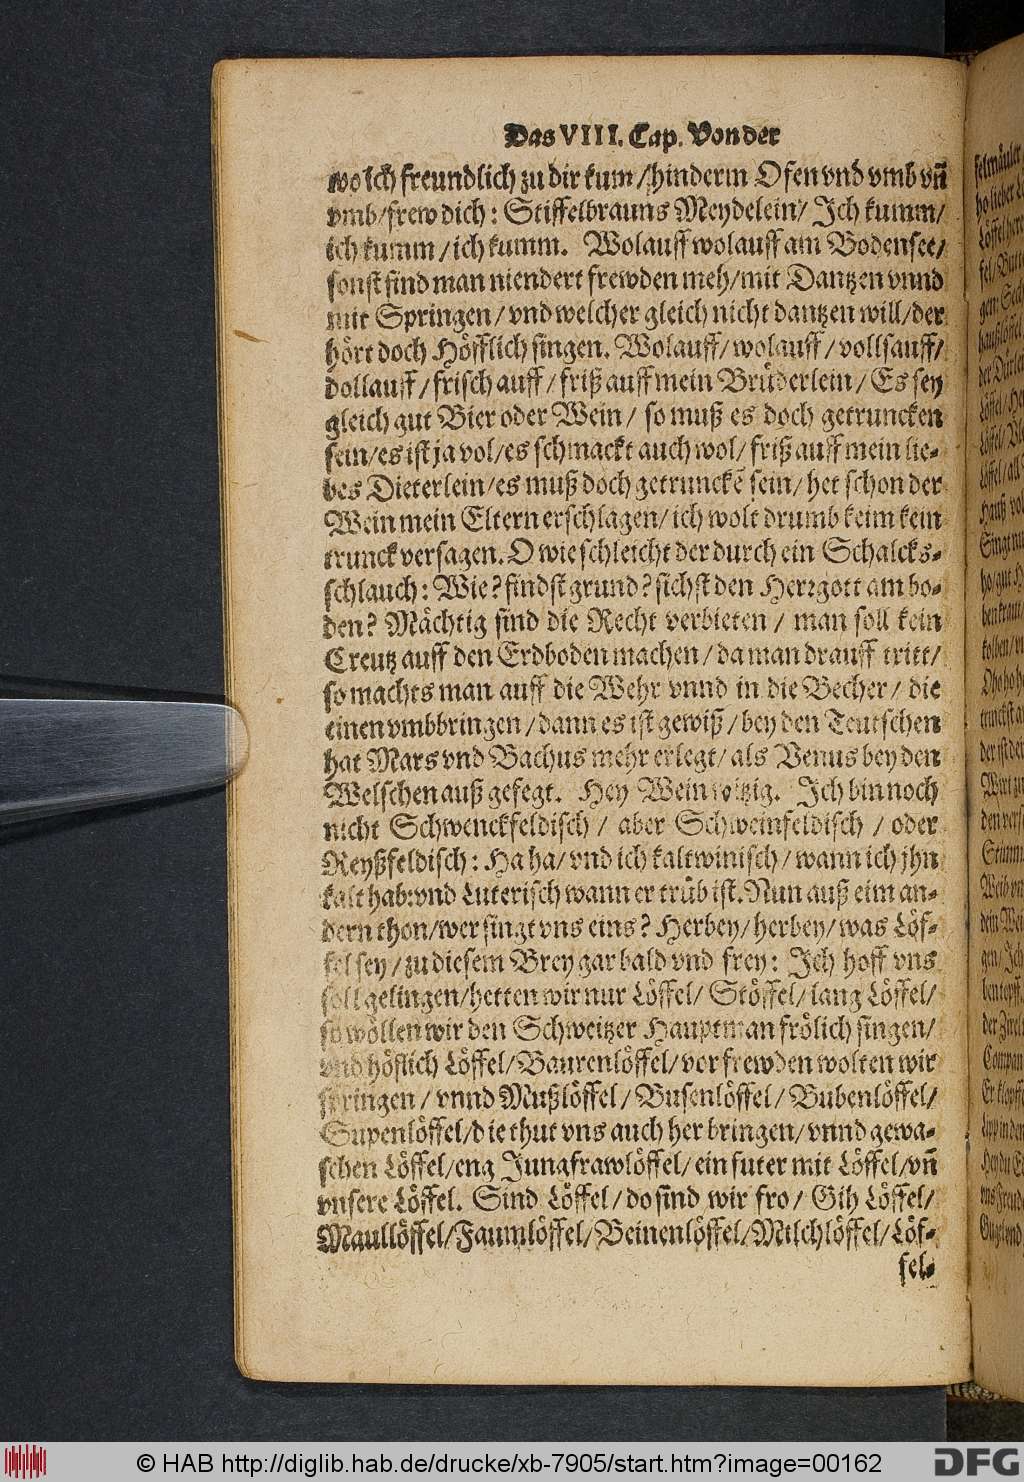 Das VIII. Cap. Von der
wo ich freundlich zu dir kum / hinderm Ofen vnd vmb vñ
vmb / frew dich : Stiffelbrauns Meydelein / Ich kumm /
ich kumm / ich kumm. Wolauff wolauff am Bodensee /
sonst find man niendert frewden meh / mit Dantzen vnnd
mit Springen / vnd welcher gleich nicht dantzen will / der
hört doch Höfflich singen. Wolauff / wolauff / vollsauff /
dollauff / frisch auff / friß auff mein Brüderlein / Es sey
gleich gut Bier oder Wein / so muß es doch getruncken
sein / es ist ja vol / es schmackt auch wol / friß auff mein lie-
bes Dieterlein / es muß doch getrunckē sein / het schon der
Wein mein Eltern erschlagen / ich wolt drumb keim kein
trunck versagen. O wie schleicht der durch ein Schalcks-
schlauch : Wie ? findst grund ? sichst den Herrgott am bo-
den ? Mächtig sind die Recht verbieten / man soll kein
Creutz auff den Erdboden machen / da man drauff tritt /
so machts man auff die Wehr vnnd in die Becher / die
einen vmbbringen / dann es ist gewiß / bey den Teutschen
hat Mars vnd Bachus mehr erlegt / als Venus bey den
Welschen auß gefegt. Hey Weinwitzig. Ich bin noch
nicht Schwenckfeldisch / aber Schweinfeldisch / oder
Reyßfeldisch : Ha ha / vnd ich kaltwinisch / wann ich jhn
kalt hab: vnd Luterisch wann er trüb ist. Nun auß eim an-
dern thon / wer singt vns eins ? Herbey / herbey / was Löf-
fel sey / zu diesem Brey gar bald vnd frey : Ich hoff vns
soll gelingen / hetten wir nur Löffel / Stöffel / lang Löffel /
so wöllen wir den Schweitzer Hauptman frölich singen /
vnd höflich Löffel / Baurenlöffel / vor frewden wolten wir
springen / vnnd Mußlöffel / Busenlöffel / Bubenlöffel /
Supenlöffel / die thut vns auch her bringen / vnnd gewa-
schen Löffel / eng Jungfrawlöffel / ein futer mit Löffel / vñ
vnsere Löffel. Sind Löffel / do sind wir fro / Gih Löffel /
Maullöffel / Faumlöffel / Beinenlöffel / Milchlöffel / Löf-
fel-
© HAB http://diglib.hab.de/drucke/xb-7905/start.htm?image=00162
DFG